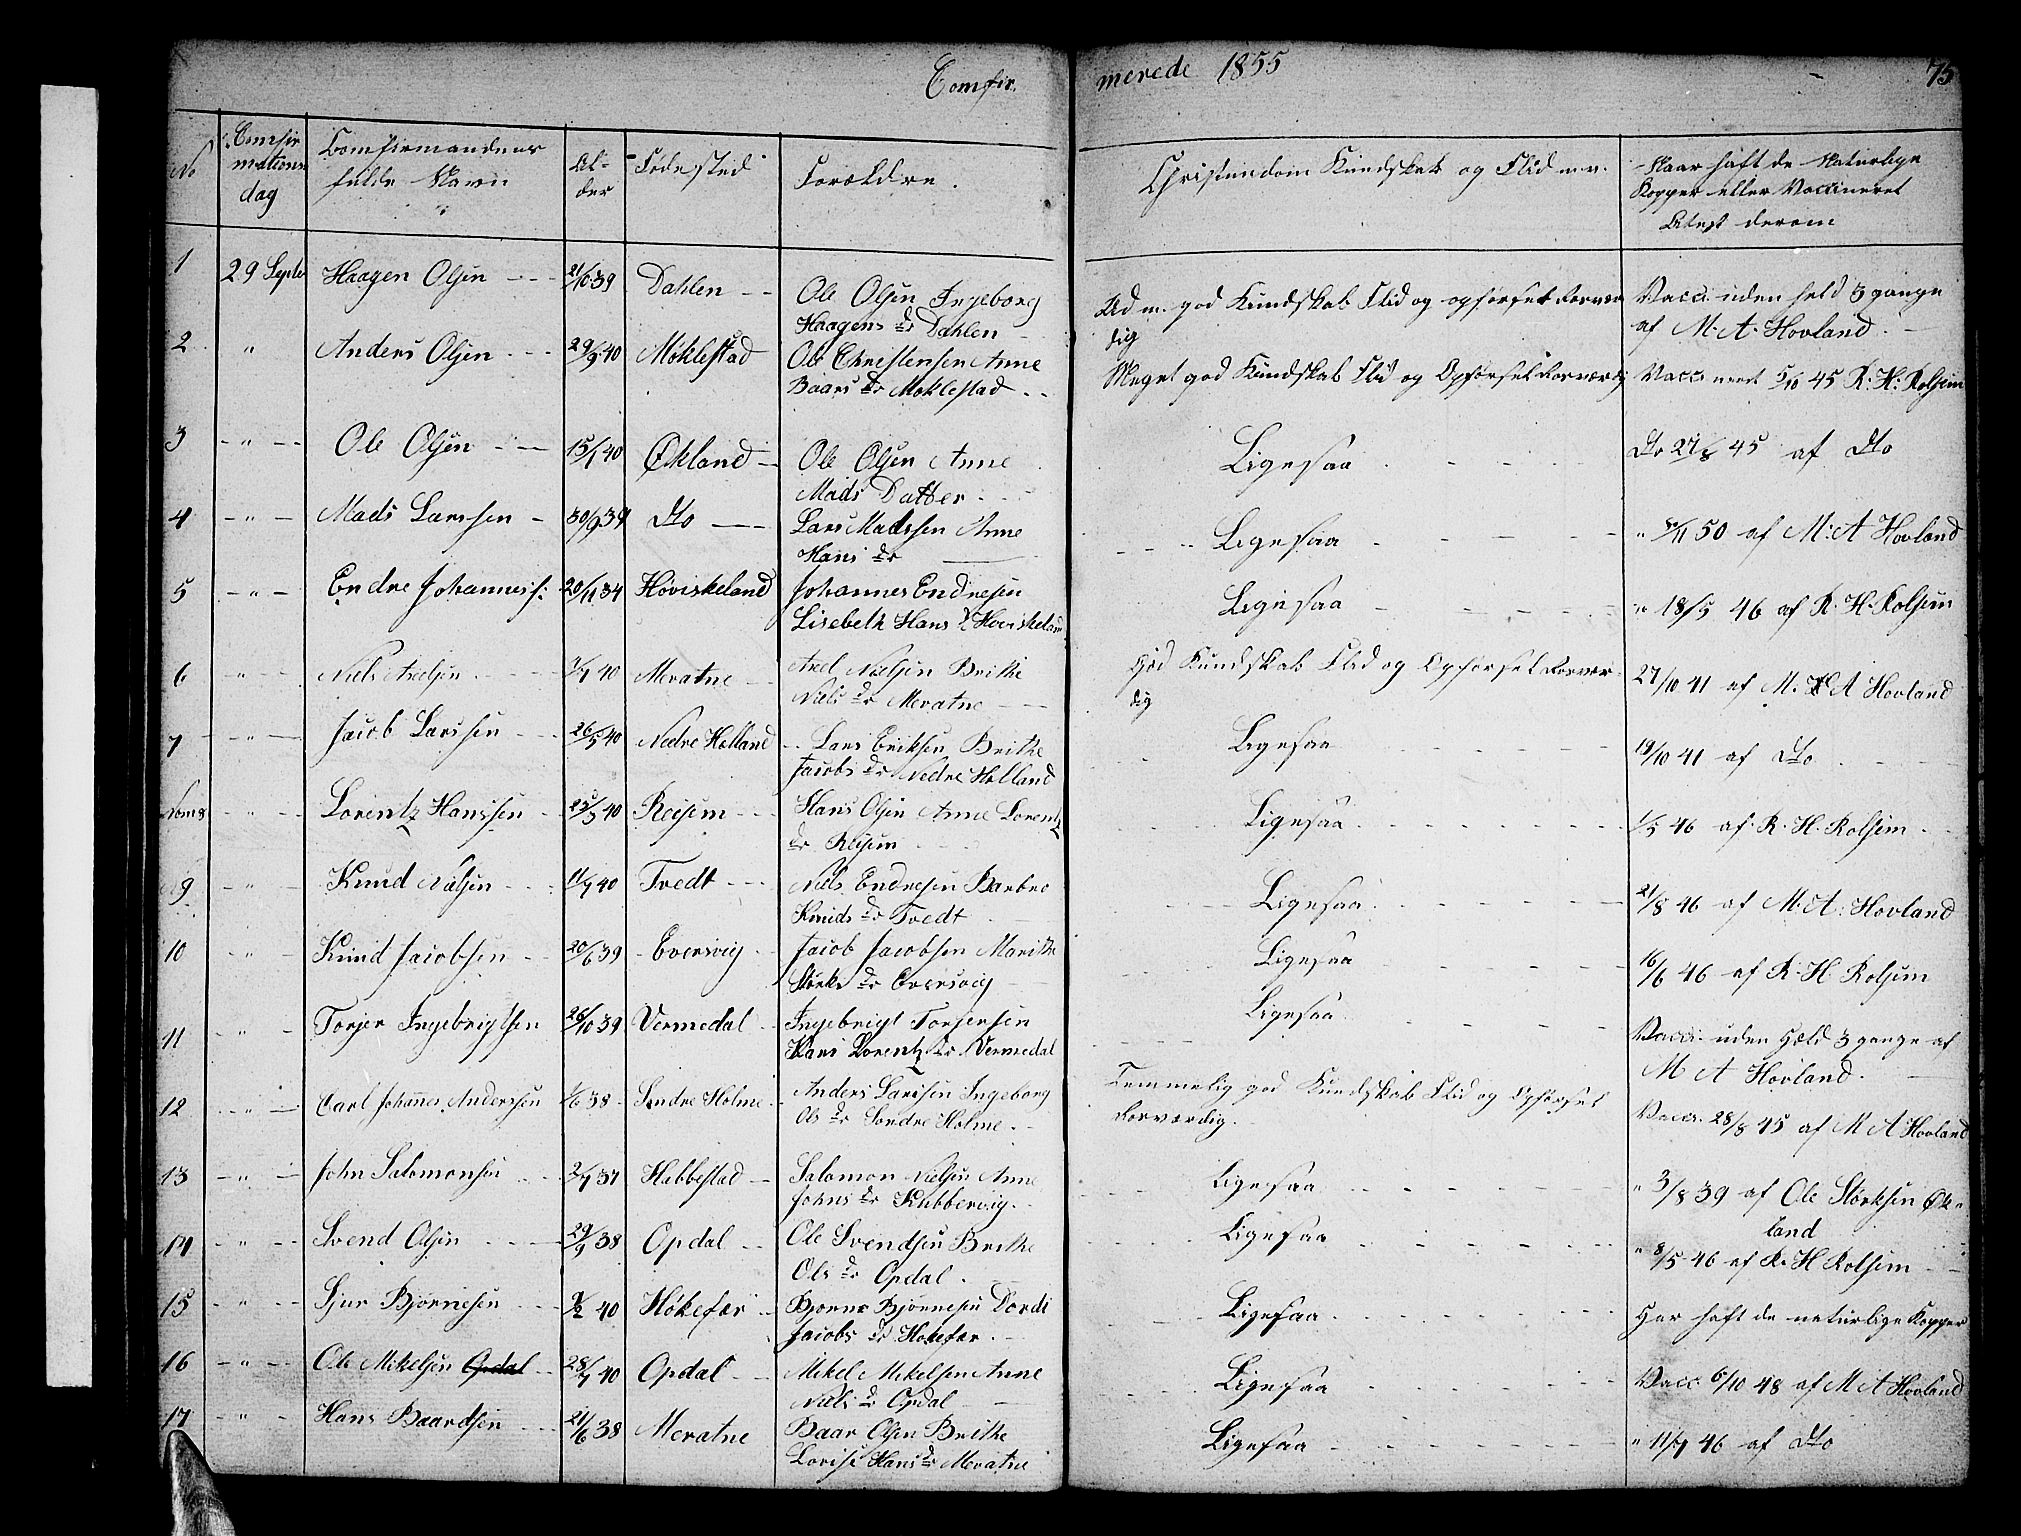 Comfir.
merede 1855
75
No
Comfir
mations
dag
Comfirmandens
fulde Navn
Al-
der
Fødested
Forældre.
Christendom Kundskab og Flid m.v.
Naar haft de Naturlige
Kopper eller Vaccineret
Atest derom
1 29 Septb Haagen Olsen 21/10 39 Dahlen Ole Olsen Ingeborg
Haagens dr Dahlen
Ud m. god Kundskab Flid og opførsel Forvær
dig
Vacc. uden held 3 gange
af M. A. Hovland.
2 " Anders Olsen 29/9 40 Møklestad Ole Christensen Anne
Baars dr Møklestad
Meget god Kundskab Flid og Opførsel Forværdig Vaccineret 5/10 45 R: H: Rolsem
3 " Ole Olsen 15/1 40 Økland Ole Olsen Anne
Mads Datter
Ligesaa Do 27/8 45 af Dto
4 " Mads Larssen 30/9 39 Dto Lars Madssen Anne
Hans dr
Ligesaa " /11 50 af M: A Hovland
5 " Endre Johanness: 20/11 34 Høviskeland Johannes Endresen
Lisebeth Hans d Hoviskeland
Ligesaa " 18/5 46 af R. H. Rolsem
6 " Niels Axelsen 40 Meratne Axel Nielsen Brithe
Niels dr Meratne
God Kundskab Flid og Opførsel Forvær
dig
27/10 41 af M. A Hovland
7 " Jacob Larssen 26/5 40 Nedre Holland Lars Eriksen Brithe
Jacobs dr Nedre Holland
Ligesaa 19/10 41 af Dto
Nom 8 " Lorentz Hanssen 25/5 40 Reisem Hans Olsen Anne Lorentz
dr Reisem
Ligesaa 1/5 46 af R. H. Rolsem
9 " Knud Nielsen 11/7 40 Tvedt Niels Endresen Barbro
Knuds dr Tvedt
Ligesaa 21/8 46 af M. A. Hovland
10 " Knud Jacobsen 20/6 39 Eversvig Jacob Jacobsen Marithe
Størks dr Eversvig
Ligesaa 16/6 46 af R. H. Rolsem
11 " Torjer Ingebrigtsen 26/10 39 Vermedal Ingebrigt Torjersen
Kari Lorentz dr Vermedal
Ligesaa Vacc. uden Held 3 gange af
M A Hovland.
12 " Carl Johannes Anderssen 1/6 38 Søndre Holme Anders Larssen Ingeborg
Ols dr Søndre Holme.
Temmelig god Kundskab Flid og Opførsel
Forværdig.
Vacc. 28/8 45 af M A Hovland
13 " John Salomonsen 2/7 37 Habbestad Salomon Nielsen Anne
Johns dr Kubbervig.
Ligesaa " 3/8 39 af Ole Størksen Øk-
land
14 " Svend Olsen 29/9 38 Opdal Ole Svendsen Brithe
Ols dr Opdal.
Ligesaa " 8/5 46 af R. H Rolsem
15 " Sjur Bjørnesen 9/2 40 Høkefær Bjørne Bjørnesen Dordi
Jacobs dr Høkefær.
Ligesaa Har haft de naturlige Kopper
16 " Ole Mikelsen Opdal 28/7 40 Opdal Mikel Mikelsen Anne
Niels dr Opdal
Ligesaa Vacc. 6/10 48 af M A Hovland
17 " Hans Baardsen 21/6 38 Meratne Baar Olsen Brithe
Lovise Hans dr Meratne
Ligesaa " 11/7 46 af Dto